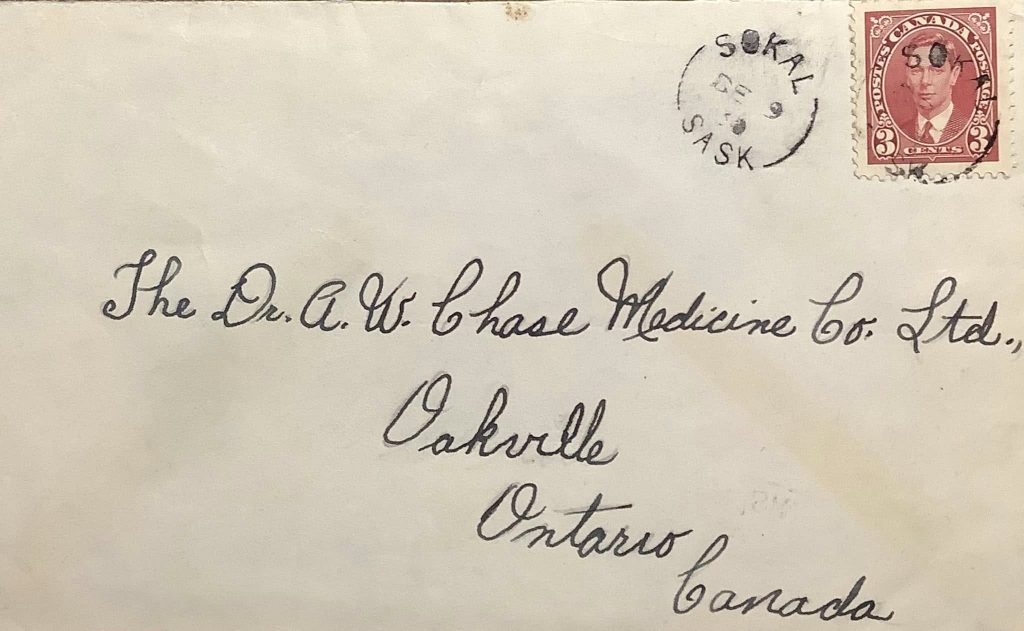 SOKAL
9
SASK
POSTES CANADA POSTAGE
SOKAL
3 CENTS 3
The Dr. A. W. Chase Medicine Co. Ltd.,
Oakville
Ontario
Canada